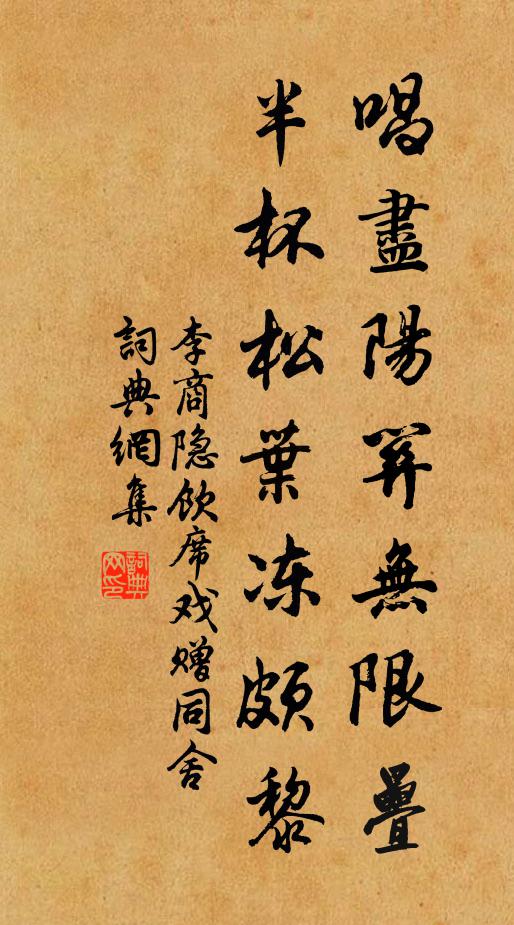 唱盡陽關無限疊
半杯松葉冻頗黎
李商隐飲席戏赠同舍
詞典網集
詞典网印